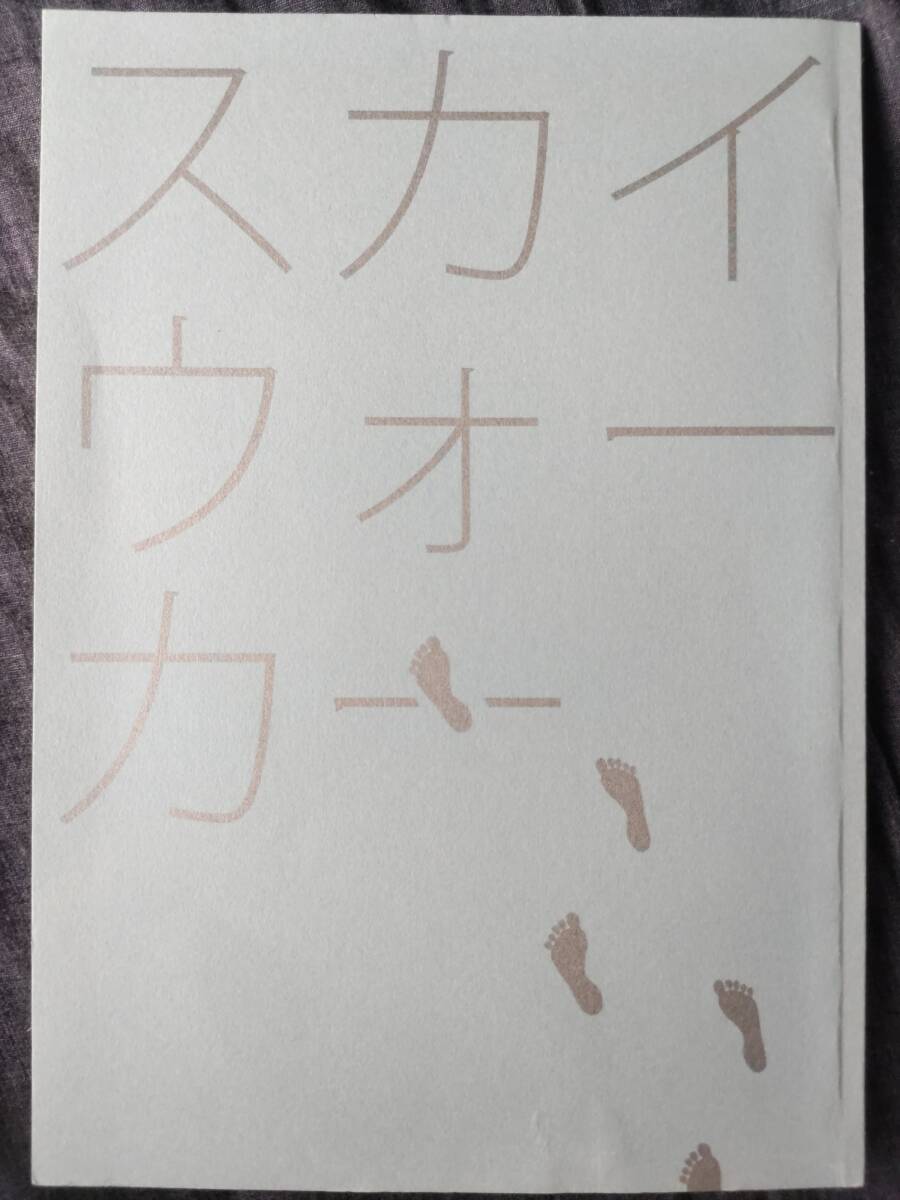 スカイ
ウォー
カー